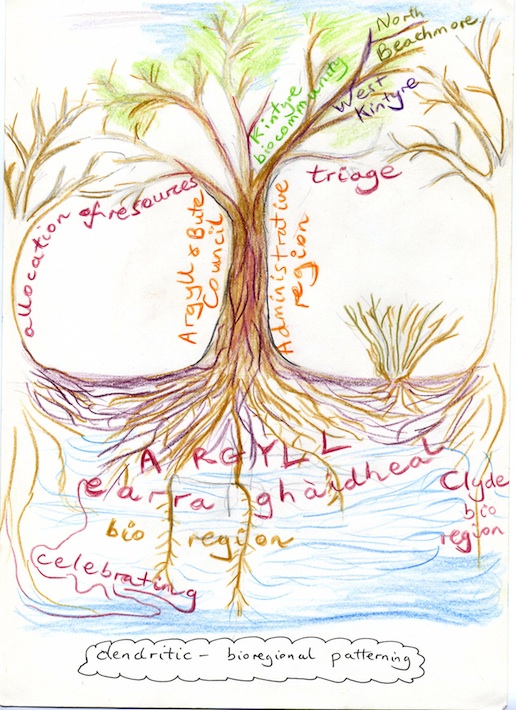 North
Beachmore
West
Kintyre
Kintyre
biocommunity
triage
allocation of resources
Argyll & Bute
Council
Administrative
region
ARGYLL
earra ghàidheal
bio region
Clyde
bio
region
celebrating
dendritic – bioregional patterning